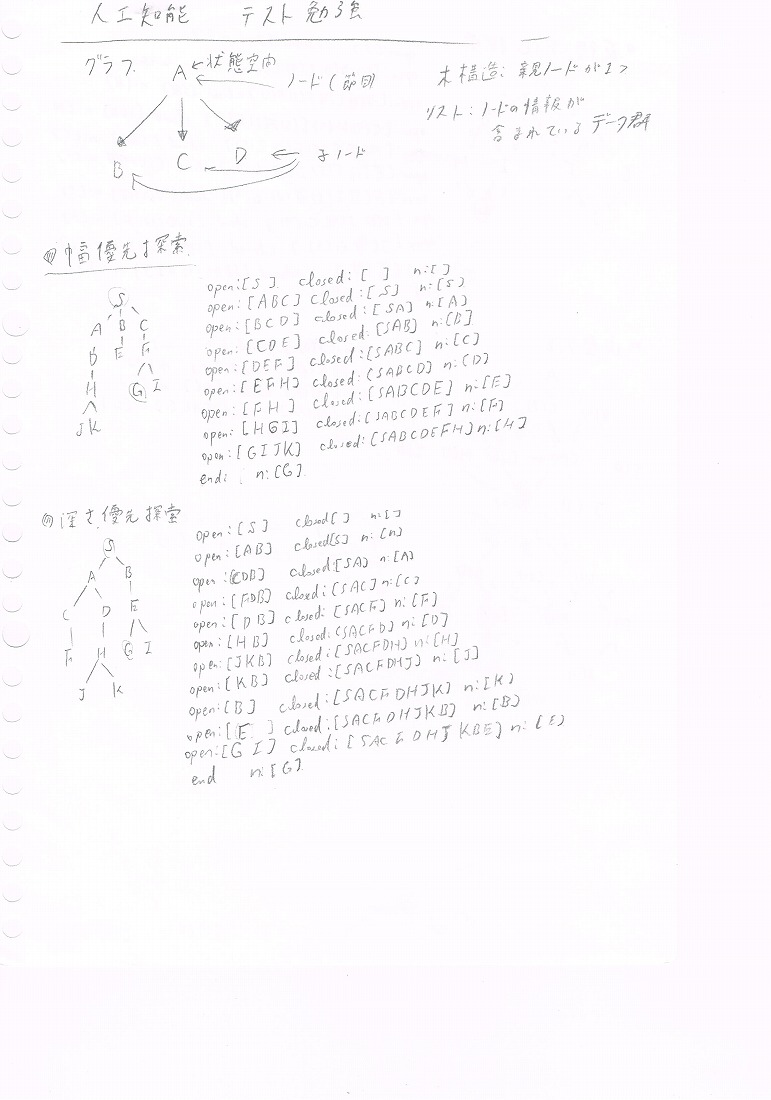 人工知能 テスト勉強
グラフ
A ←状態空間
ノード(節目)
B C D ← 子ノード
木構造: 親ノードが1つ
リスト: ノードの情報が
含まれている データ群
幅優先探索
S
A B C
D E F
H G I
J K
open:[S] closed:[ ] n:[ ]
open:[ABC] closed:[S] n:[S]
open:[BCD] closed:[SA] n:[A]
open:[CDE] closed:[SAB] n:[B]
open:[DEF] closed:[SABC] n:[C]
open:[EFH] closed:[SABCD] n:[D]
open:[FH] closed:[SABCDE] n:[E]
open:[HGI] closed:[SABCDEF] n:[F]
open:[GIJK] closed:[SABCDEFH] n:[H]
end: n:[G]
深さ優先探索
S
A B
C D E
F H G I
J K
open:[S] closed[ ] n:[ ]
open:[AB] closed[S] n:[n]
open:[CDB] closed:[SA] n:[A]
open:[FDB] closed:[SAC] n:[C]
open:[DB] closed:[SACF] n:[F]
open:[HB] closed:[SACFD] n:[D]
open:[JKB] closed:[SACFDH] n:[H]
open:[KB] closed:[SACFDHJ] n:[J]
open:[B] closed:[SACFDHJK] n:[K]
open:[E] closed:[SACFDHJKB] n:[B]
open:[GI] closed:[SACFDHJKBE] n:[E]
end n:[G]